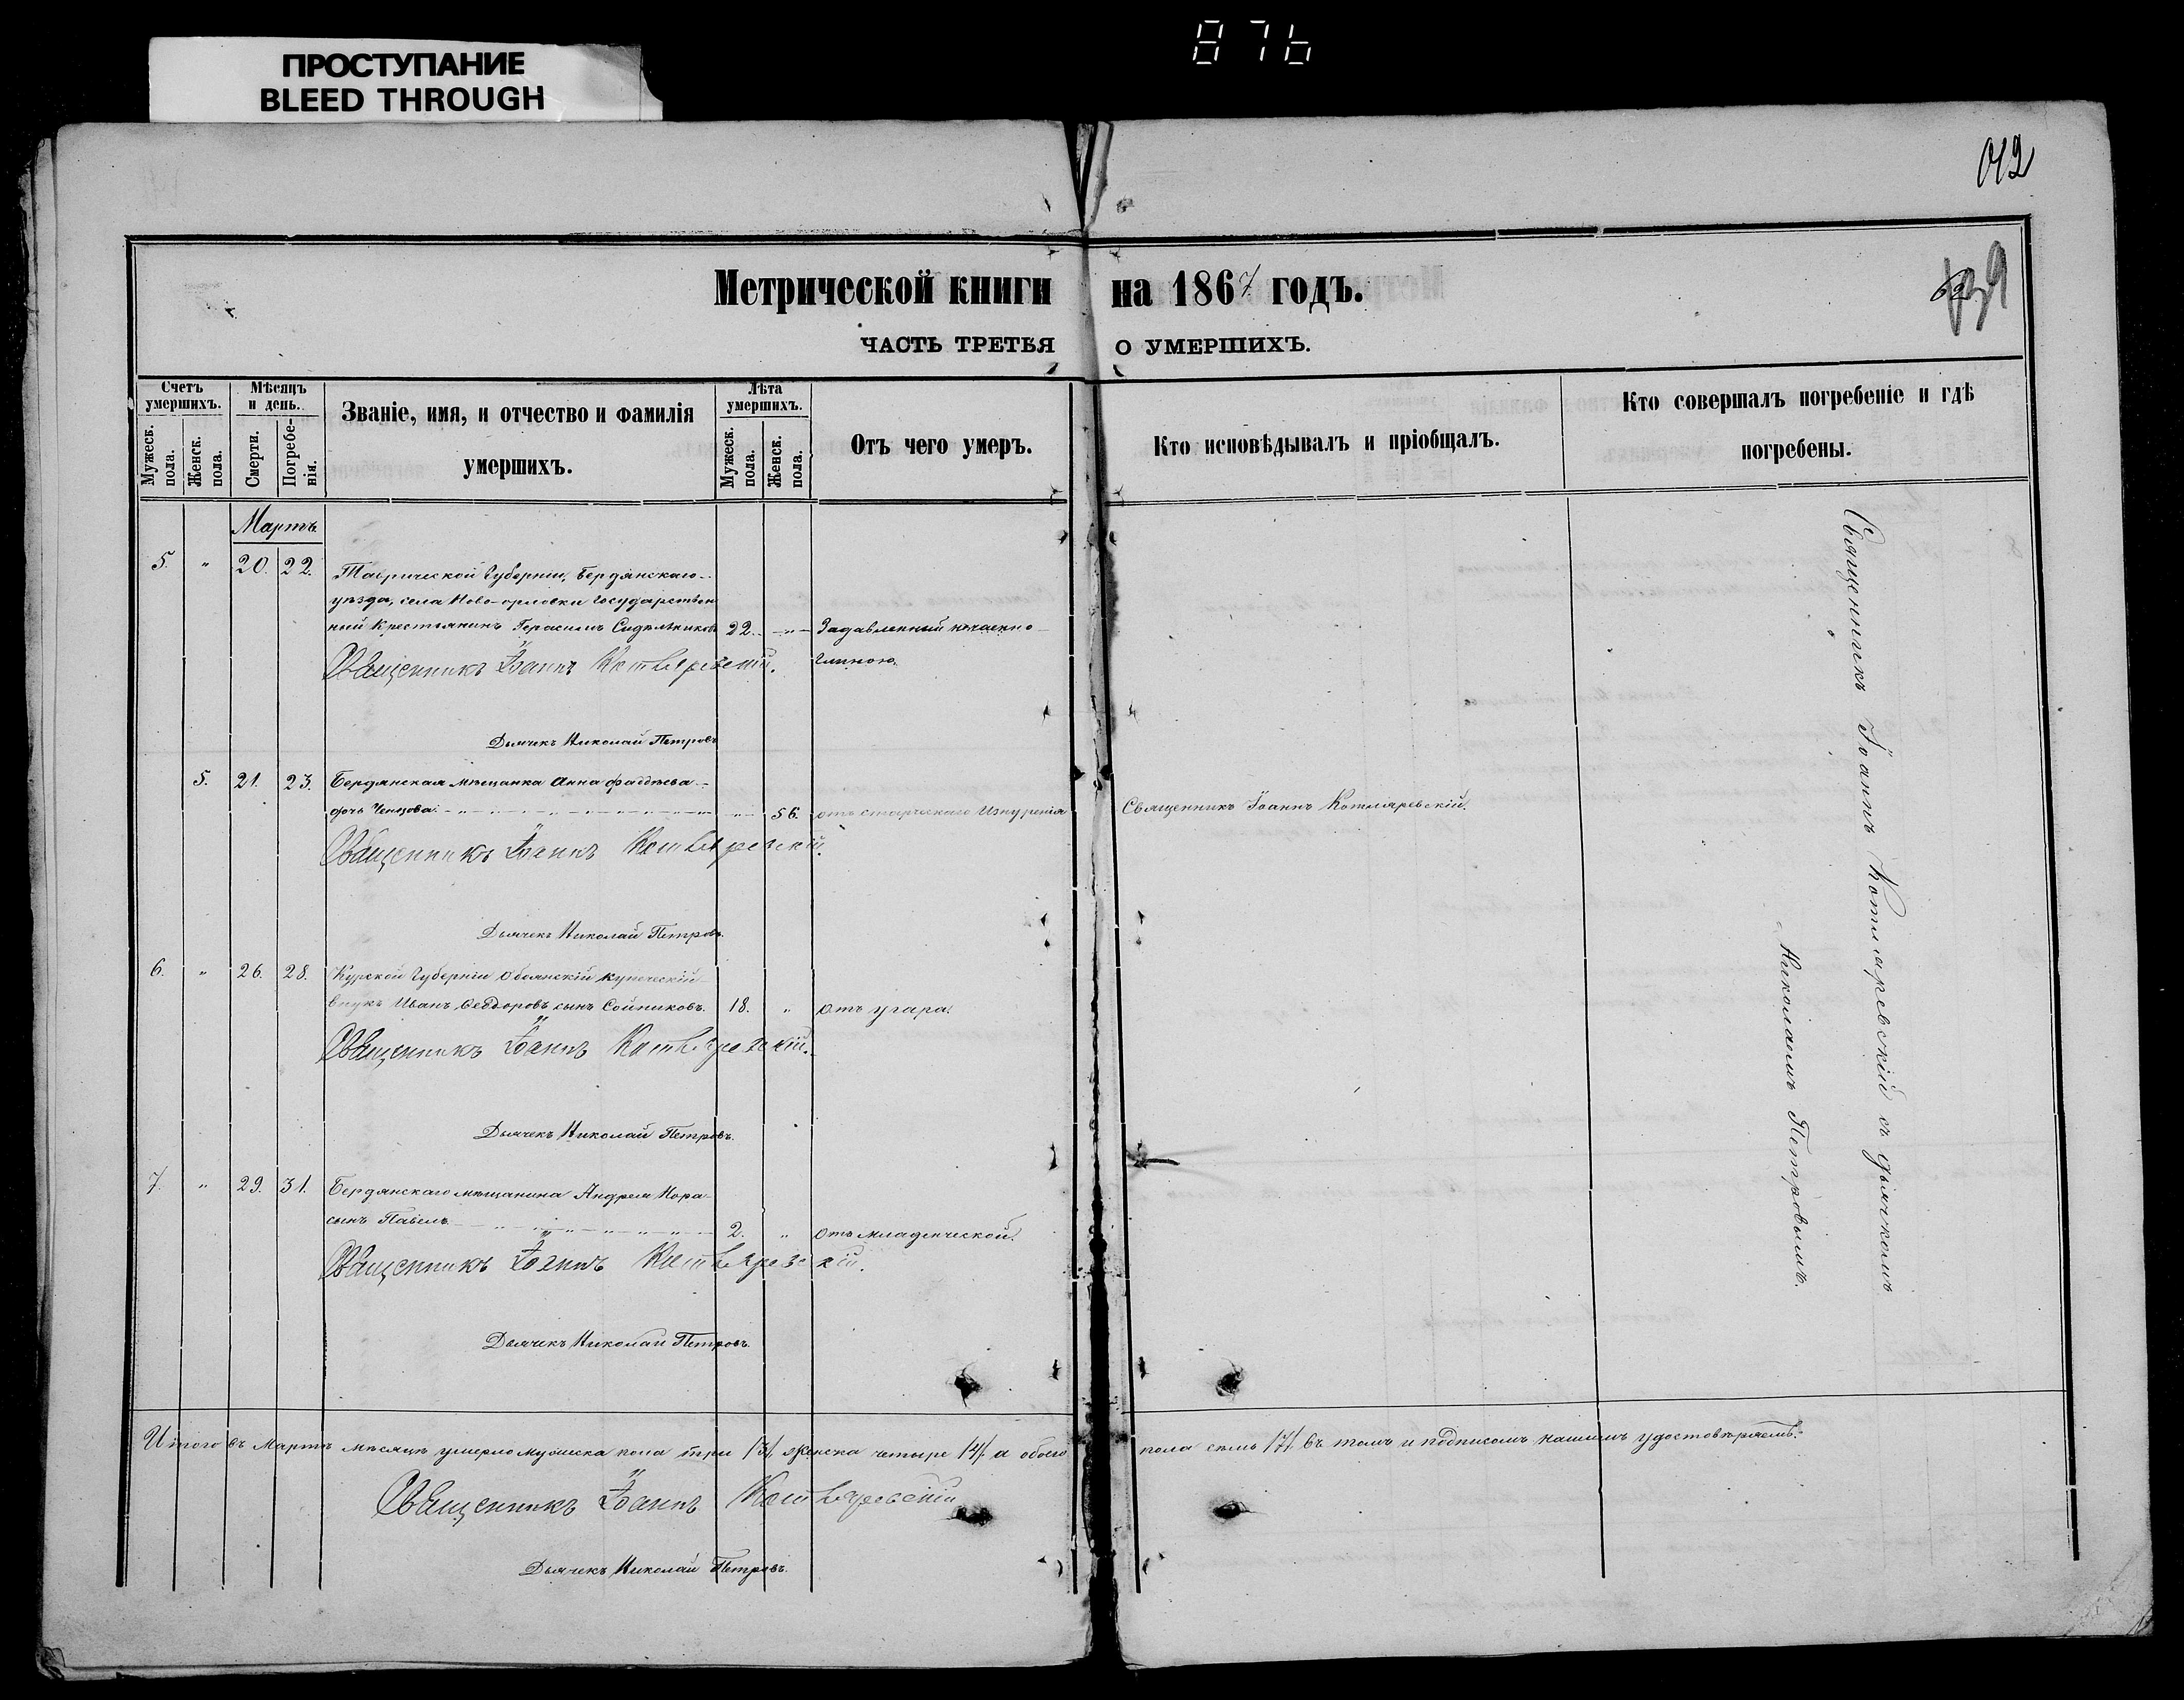 876
ПРОСТУПАНИЕ
BLEED THROUGH
Метрической книги на 1867 годъ.
ЧАСТЬ ТРЕТЬЯ О УМЕРШИХЪ.
Счетъ умершихъ.
Мужеск. пола.
Женск. пола.
Мѣсяцъ и день.
Смерти.
Погребенія.
Званіе, имя, и отчество и фамилія
умершихъ.
Лѣта умершихъ.
Мужеск. пола.
Женск. пола.
Отъ чего умеръ.
Кто исповѣдывалъ и пріобщалъ.
Кто совершалъ погребеніе и гдѣ
погребены.
Мартъ
5. " 20. 22. Таврической Губерніи, Бердянскаго
уѣзда, села Ново-орловки Государствен
ный Крестьянинъ Герасимъ Сидѣльниковъ 22. " Задавленный
глиною.
Священникъ Іоаннъ Котляревскій.
Дьячекъ Николай Петровъ
5. 21. 23. Бердянская мѣщанка Анна Фаддѣева
дочь Ченцова. 56. отъ старческаго изнуренія Священникъ Іоаннъ Котляревскій.
Священникъ Іоаннъ Котляревскій.
Дьячекъ Николай Петровъ.
6. " 26. 28. Курской Губерніи Обоянскій купеческій
внукъ Иванъ Феддоровъ сынъ Сойниковъ. 18. " отъ угара.
Священникъ Іоаннъ Котляревскій.
Дьячекъ Николай Петровъ.
7. " 29. 31. Бердянскаго мѣщанина Андрея Мора
сынъ Павелъ 2. " отъ младенческой.
Священникъ Іоаннъ Котляревскій.
Дьячекъ Николай Петровъ.
Священникъ Іоаннъ Котляревскій съ дьячкомъ
Николаемъ Петровымъ.
Итого въ Мартѣ мѣсяцѣ умерло мужеска пола три /3/, женска четыре /4/ а обоего пола семь /7/ въ томъ и подписомъ нашимъ удостовѣряемъ.
Священникъ Іоаннъ Котляревскій
Дьячекъ Николай Петровъ.